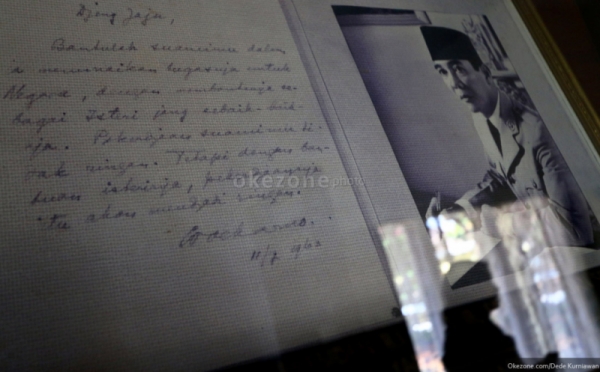 Djeng
Bantulah suamimu dalam
ia menunaikan tugasnja untuk
Negara, dengan membantunja se-
bagai Isteri jang sebaik-baik-
nja. Pekerdjaan suamimu ti-
dak ringan. Tetapi dengan ban-
tuan isterinja, pekerdjaannja
itu akan mendjadi ringan.
Soekarno.
11/7
okezone photo
Okezone.com/Dede Kurniawan